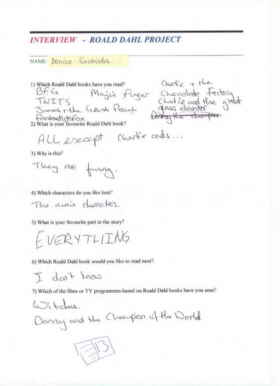 INTERVIEW - ROALD DAHL PROJECT
NAME: Denise
1) Which Roald Dahl books have you read?
BFG Magic Finger Charlie + the Chocolate Factory
TWITS Charlie and the great glass elevator
James + the Giant Peach Danny the champion
Fantastic Fox
2) What is your favourite Roald Dahl book?
ALL except Charlie ends...
3) Why is this?
They are funny.
4) Which characters do you like best?
The main character.
5) What is your favourite part in the story?
EVERYTHING
6) Which Roald Dahl book would you like to read next?
I don't know
7) Which of the films or TV programmes based on Roald Dahl books have you seen?
Witches.
Danny and the Champion of the World